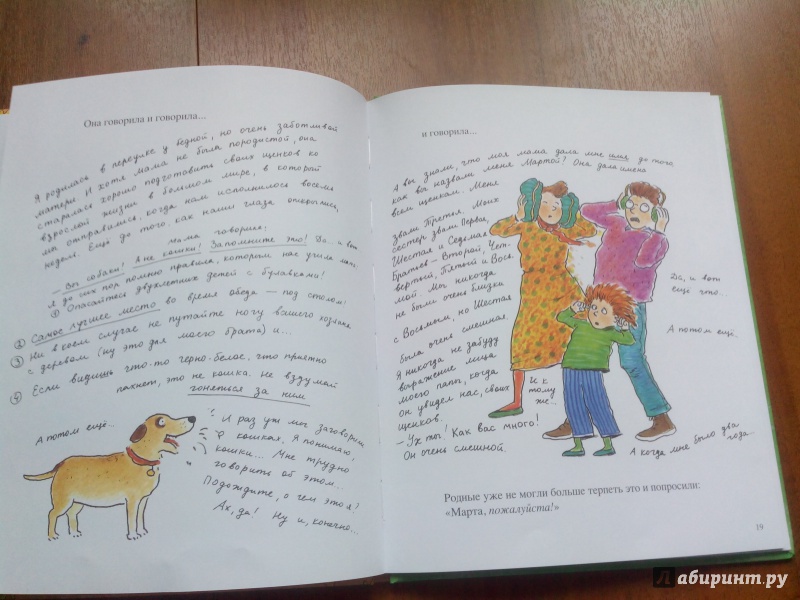 Она говорила и говорила...
Я родилась в переулке у бедной, но очень заботливой
матери. И хотя мама не была породистой, она
старалась хорошо подготовить своих щенков ко
взрослой жизни в большом мире, в который
мы отправимся, когда нам исполнится восемь
недель. Ещё до того, как наши глаза открылись,
мама говорила:
— Вы собаки! А не кошки! Запомните это! Да... и вот
я до сих пор помню правила, которым нас учила мама:
① Опасайтесь двухлетних детей с булавками!
② Самое лучшее место во время обеда — под столом!
③ Ни в коем случае не путайте ногу вашего хозяина
с деревом (ну это для моего брата) и...
④ Если видишь что-то черно-белое, что приятно
пахнет, это не кошка. Не вздумай
гоняться за ним
А потом ещё...
И раз уж мы заговорили
о кошках, я понимаю,
кошки... Мне трудно
говорить об этом...
Подождите, о чем это я?
Ах, да! Ну и, конечно...
и говорила...
А вы знали, что моя мама дала мне имя до того,
как вы назвали меня Мартой? Она дала имена
всем щенкам. Меня
звали Третья. Моих
сестер звали Первая,
Шестая и Седьмая.
Братьев — Второй, Чет-
вертый, Пятый и Вось-
мой. Мы никогда
не были очень близки
с Восьмым, но Шестая
была очень смешная.
Я никогда не забуду
выражение лица
моего папы, когда
он увидел нас, своих
щенков.
— Ух ты! Как вас много!
Он очень смешной.
И к
тому
же...
Да, и вот
ещё что...
А потом ещё...
А когда мне было два
года...
Родные уже не могли больше терпеть это и попросили:
«Марта, пожалуйста!»
19
Лабиринт.ру